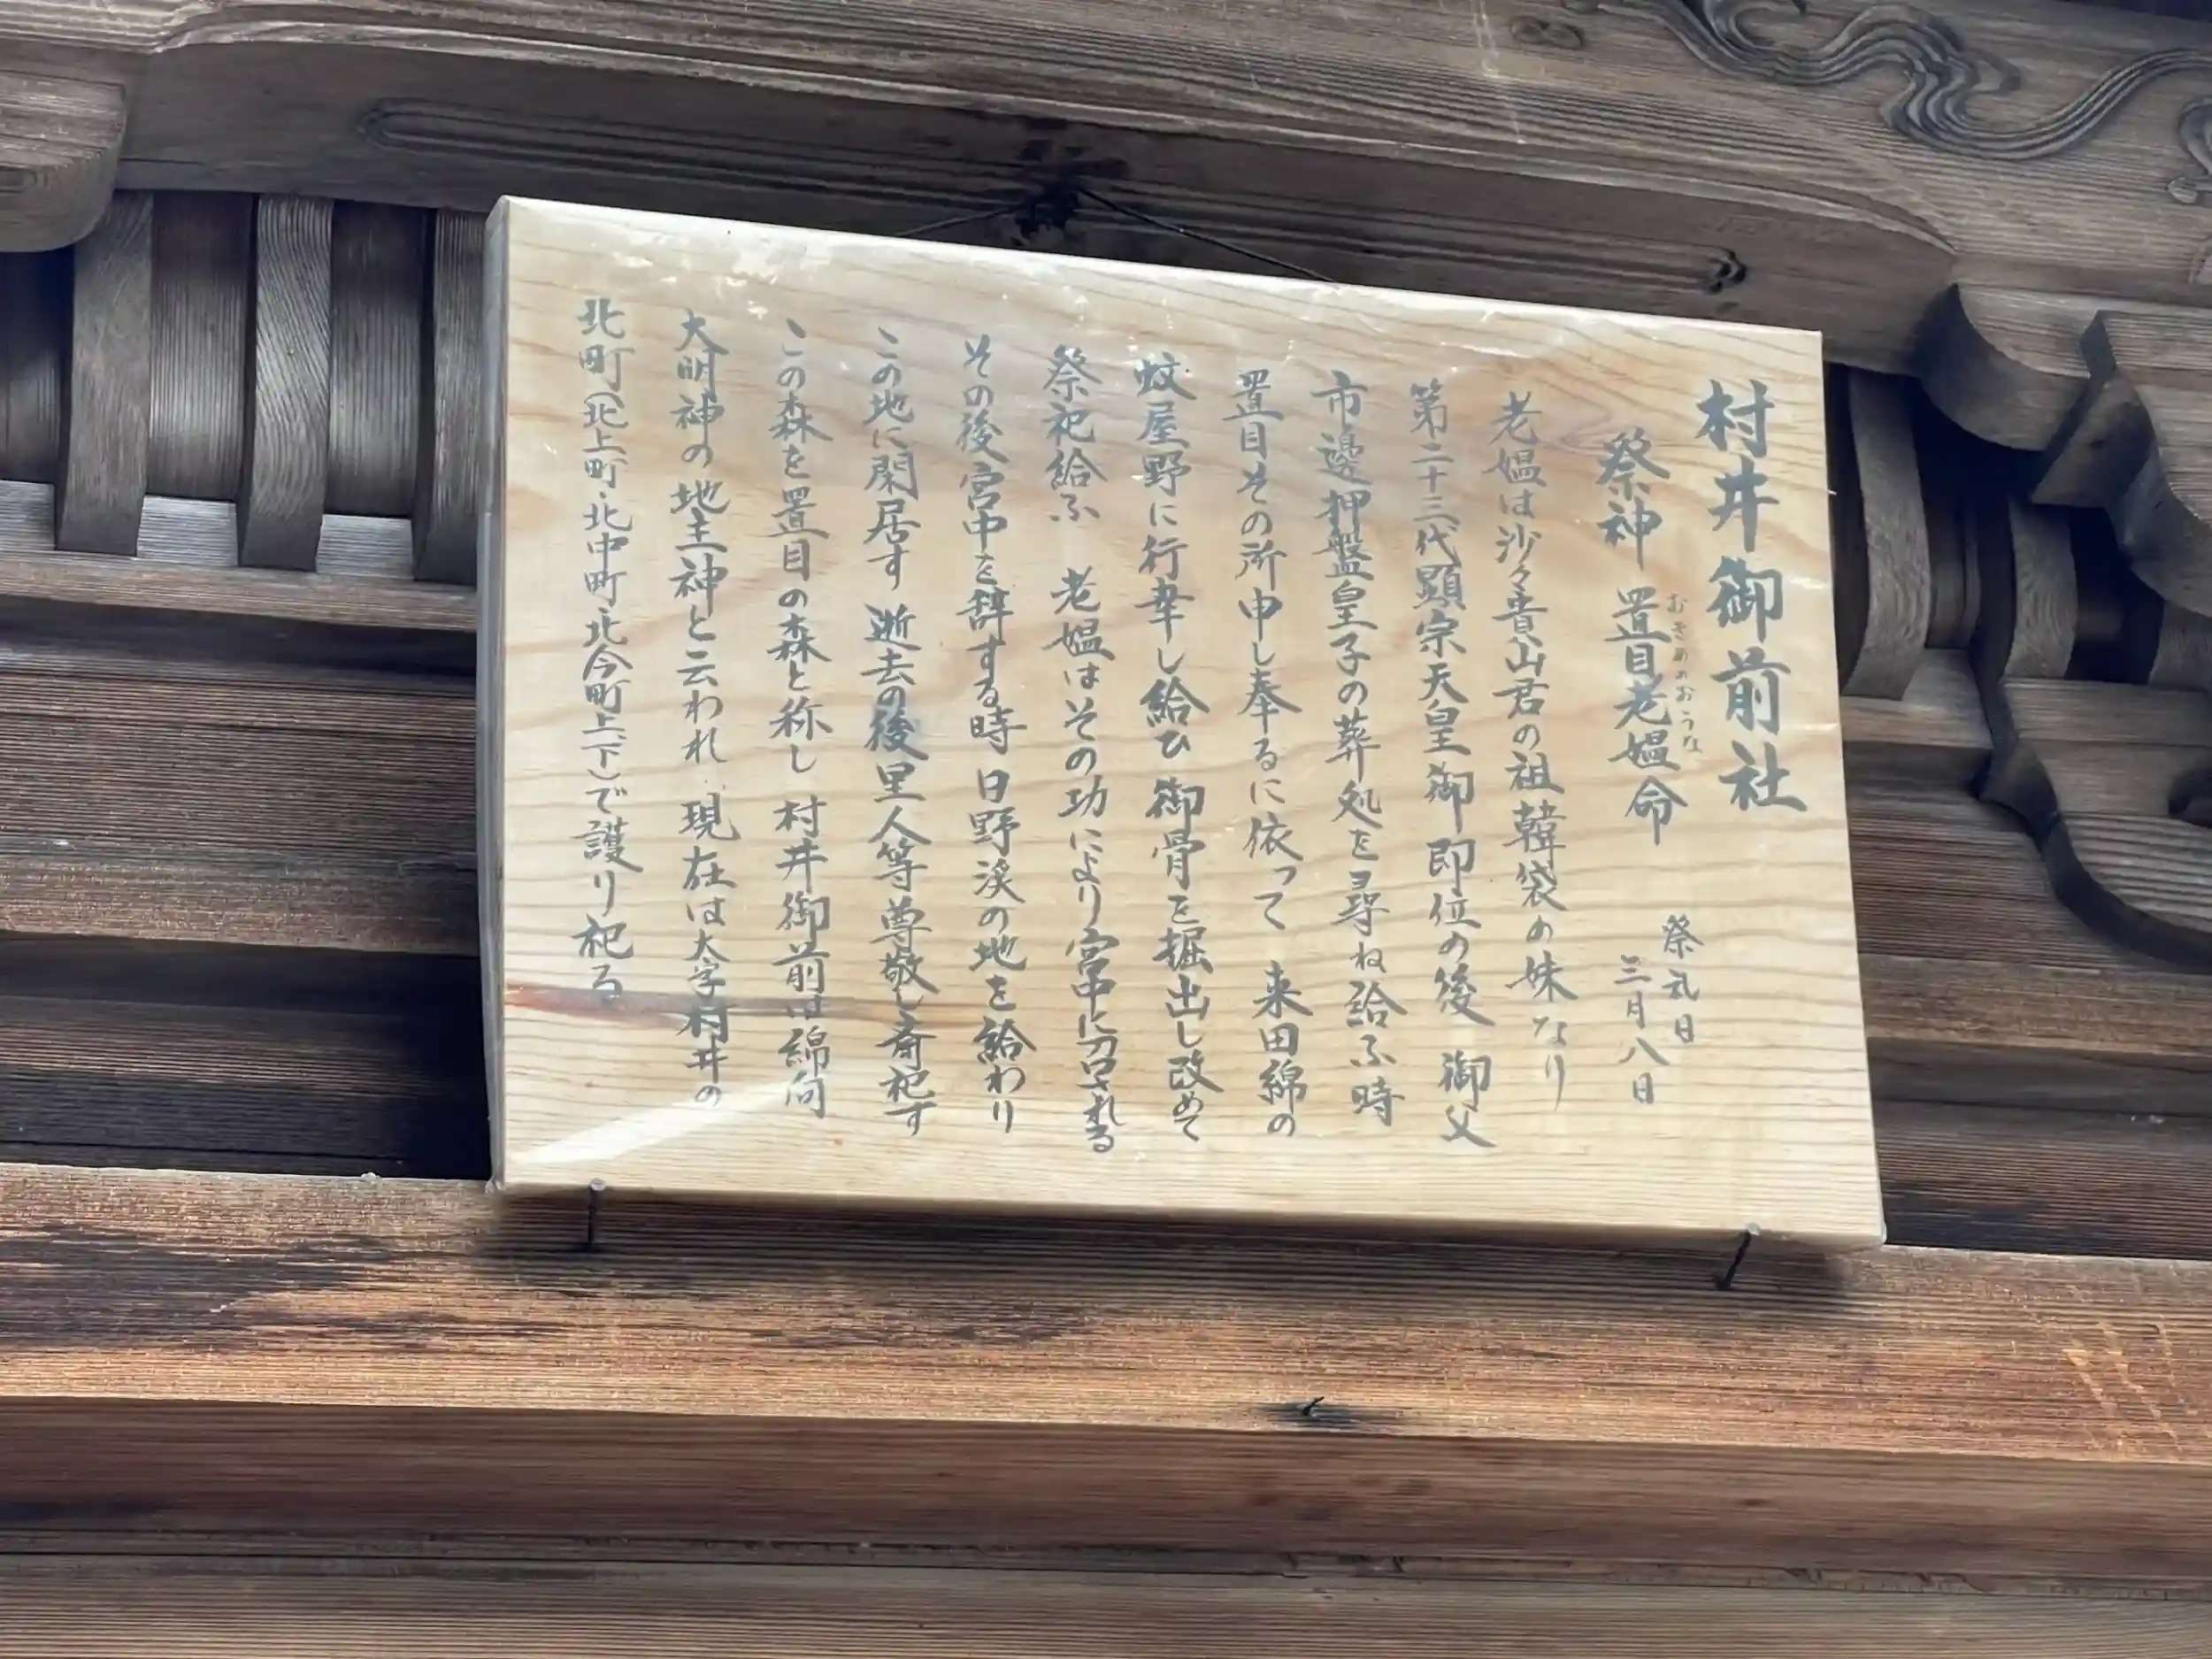 村井御前社
祭神 置目老媼命
おきめのおうな
祭礼日
三月八日
老媼は沙々貴山君の祖韓袋の妹なり
第二十三代顕宗天皇御即位の後 御父
市邊押盤皇子の葬処を尋ね給ふ時
置目その所申し奉るに依って 来田綿の
蚊屋野に行幸し給ひ 御骨を掘出し改めて
祭祀給ふ 老媼はその功により宮中に召される
その後宮中を辞する時 日野渓の地を給わり
この地に閑居す 逝去の後里人等尊敬し斎祀す
この森を置目の森と称し 村井御前は綿向
大明神の地主神と云われ 現在は大字村井の
北町(北上町・北中町・北今町上・下)で護り祀る